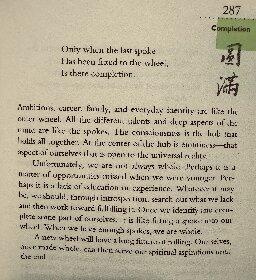 287
Completion
圓
滿
Only when the last spoke
Has been fixed to the wheel,
Is there completion.
Ambitions, career, family, and everyday identity are like the
outer wheel. All the different talents and deep aspects of the
mind are like the spokes. The consciousness is the hub that
holds all together. At the center of the hub is emptiness—that
aspect of ourselves that is open to the universal reality.
Unfortunately, we are not always whole. Perhaps it is a
matter of opportunities missed when we were younger. Per-
haps it is a lack of education or experience. Whatever it may
be, we should, through introspection, search out what we lack
and then work toward fulfilling it. Once we identify and com-
plete some part of ourselves, it is like fixing a spoke into our
wheel. When we have enough spokes, we are whole.
A new wheel will have a long future of rolling. Our selves,
once made whole, can then serve our spiritual aspirations unto
the end.